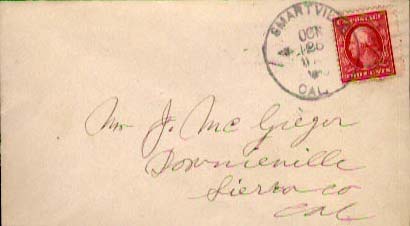 SMARTVIL
OCT
26
CAL.
U.S. POSTAGE
TWO CENTS
Mr J. McGieger
Downieville
Sierra co
Cal